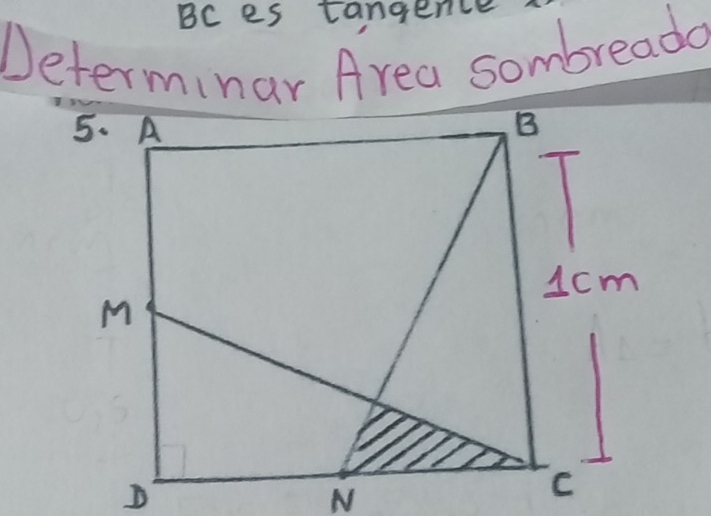 BC es tangente
Determinar Area sombreado
5. A
B
1cm
M
D
N
C